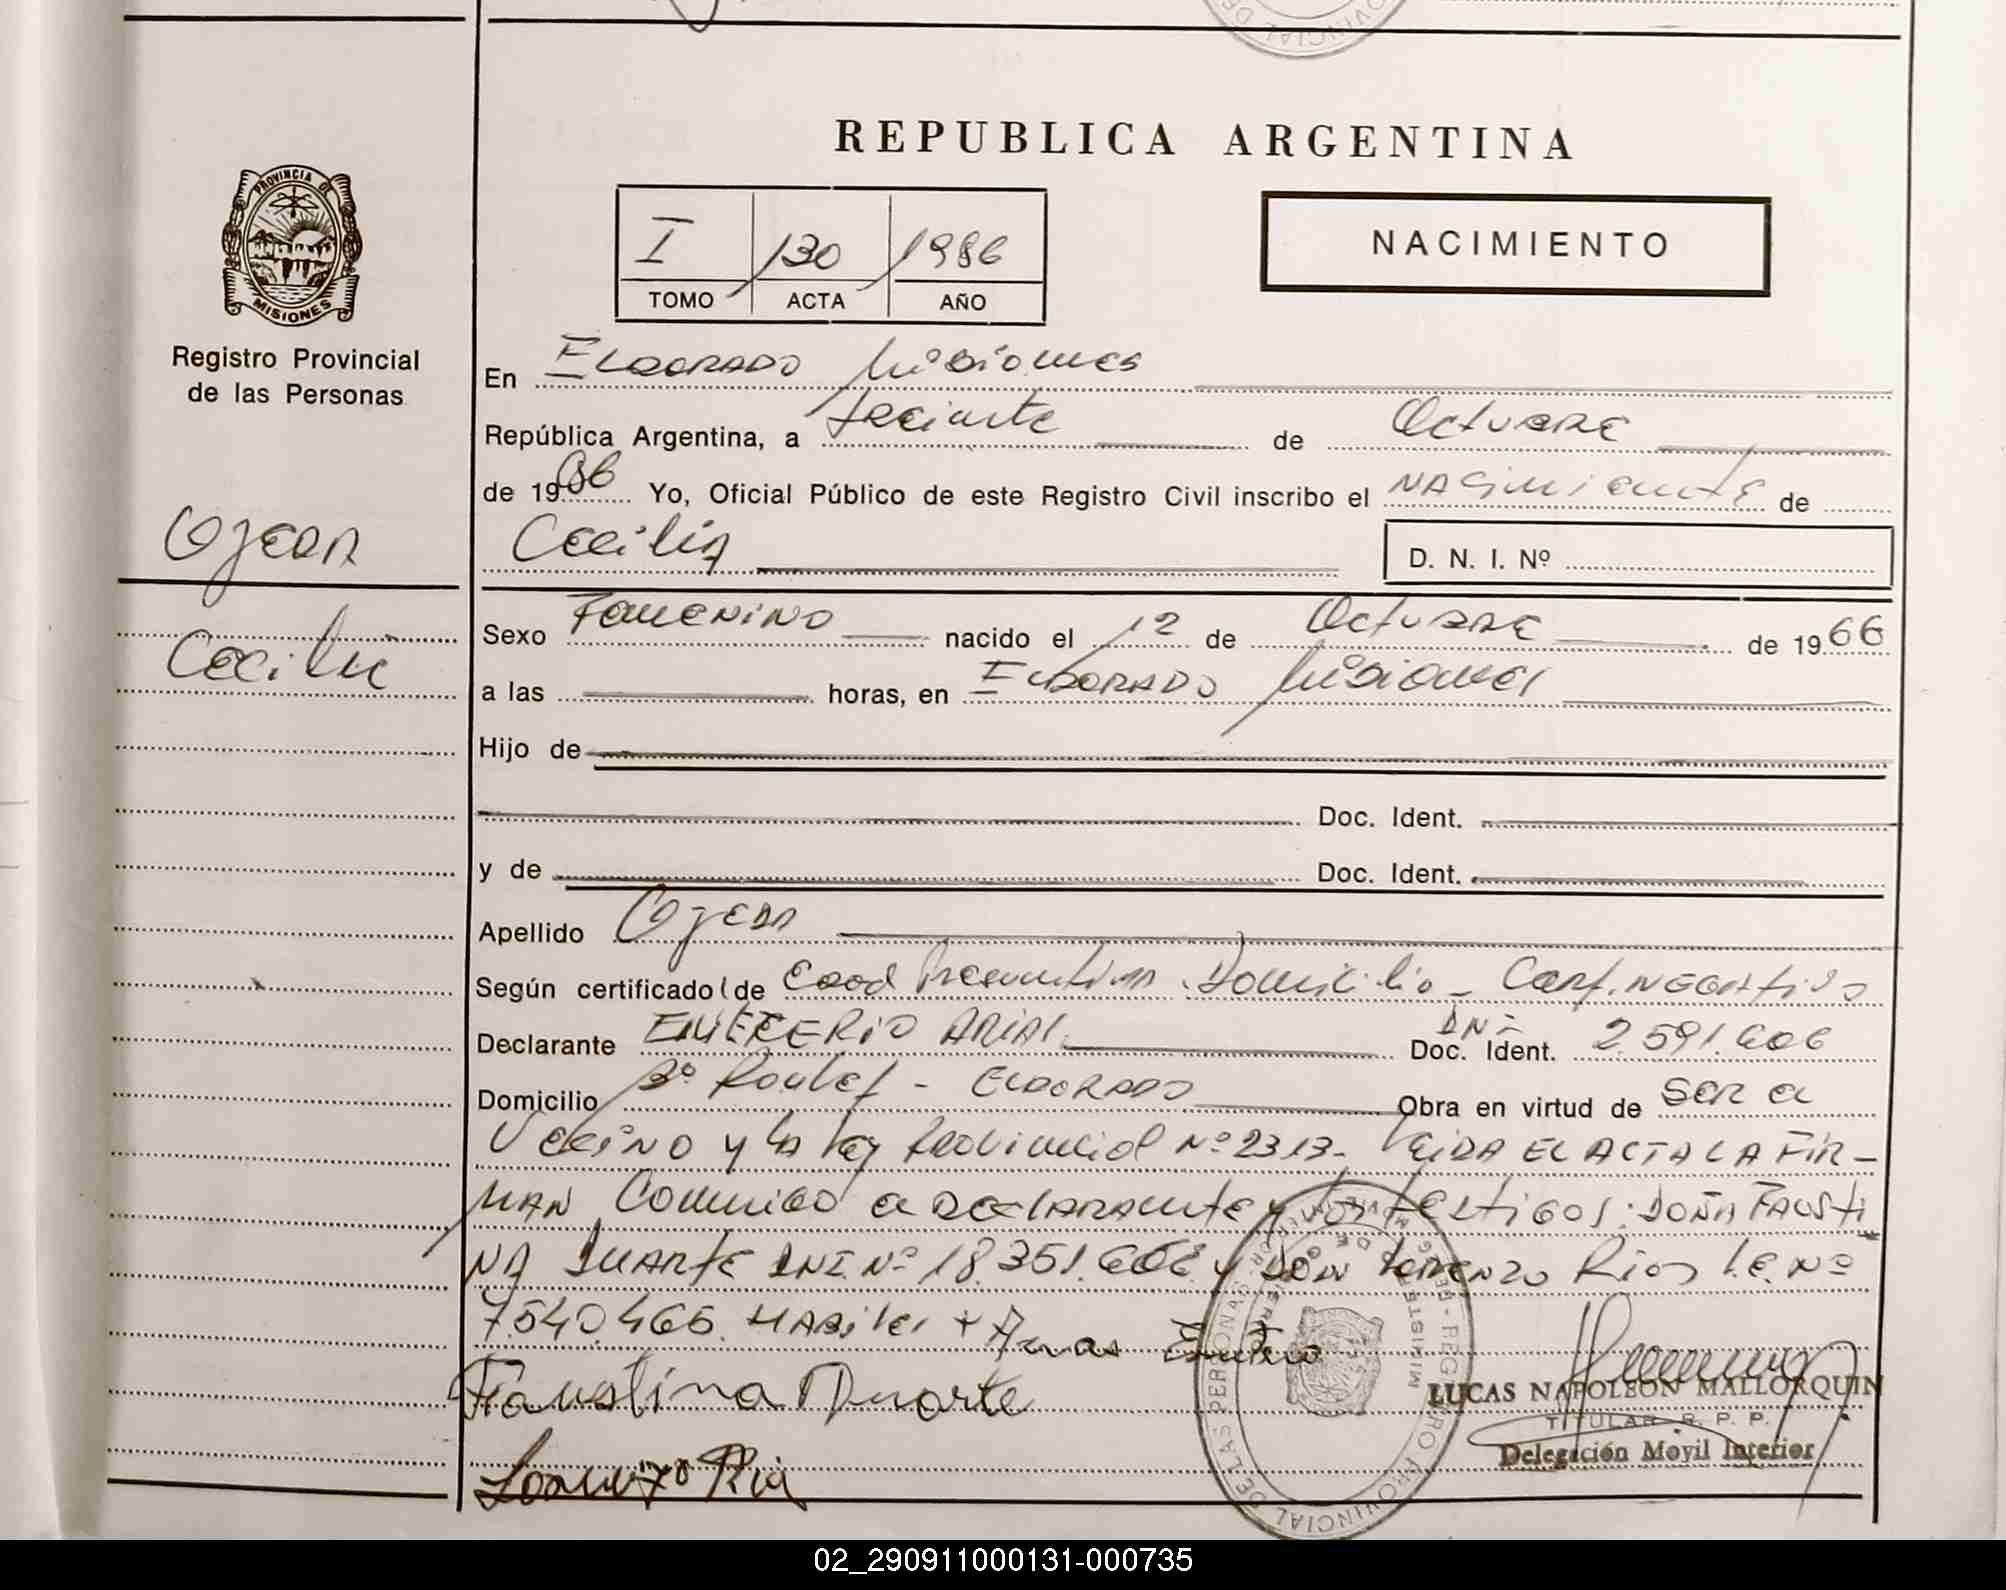 REPUBLICA ARGENTINA
PROVINCIA DE
MISIONES
Registro Provincial
de las Personas
I 130 1986
TOMO ACTA AÑO
NACIMIENTO
En Eldorado Misiones
República Argentina, a treinta de Octubre
de 1986 Yo, Oficial Público de este Registro Civil inscribo el Nacimiento de
Cecilia D. N. I. Nº
Ojeda
Cecilia
Sexo Femenino nacido el 12 de Octubre de 1966
a las horas, en Eldorado Misiones
Hijo de
Doc. Ident.
y de Doc. Ident.
Apellido Ojeda
Según certificado de Edad Presuntiva Domicilio - Cert. Negativo
Declarante Emeterio Arias Doc. Ident. DNI 2.591.606
Domicilio Eldorado Obra en virtud de ser el
Vecino y la ley Provincial Nº 2313- Leida el acta la fir-
man conmigo el declarante y los testigos: Doña Fausti
na Duarte DNI. Nº 18.351. y Don Lorenzo Rios L.E. Nº
7.540.466. Habiles
Faustina Duarte
LUCAS NAPOLEON MALLORQUIN
TITULAR R. P. P.
Delegación Movil Interior
Lorenzo
REGISTRO PROVINCIAL DE LAS PERSONAS
02_290911000131-000735